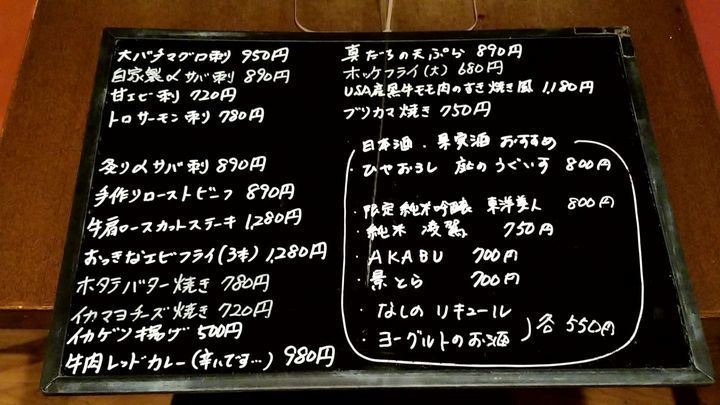 大バチマグロ刺 950円
自家製〆サバ刺 890円
甘エビ刺 720円
トロサーモン刺 780円
炙り〆サバ刺 890円
手作りローストビーフ 890円
牛肩ロースカットステーキ 1,280円
おっきなエビフライ(3本) 1,280円
ホタテバター焼き 780円
イカマヨチーズ焼き 720円
イカゲソ揚げ 500円
牛肉レッドカレー(辛いです…) 980円
真だらの天ぷら 890円
ホッケフライ(大) 680円
USA産黒牛モモ肉のすき焼き風 1,180円
ブリカマ焼き 750円
日本酒・果実酒 おすすめ
・ひやおろし 庭のうぐいす 800円
・限定純米吟醸 東洋美人 800円
・純米 凌駕 750円
・AKABU 700円
・景とら 700円
・なしの リキュール
・ヨーグルトのお酒 各 550円